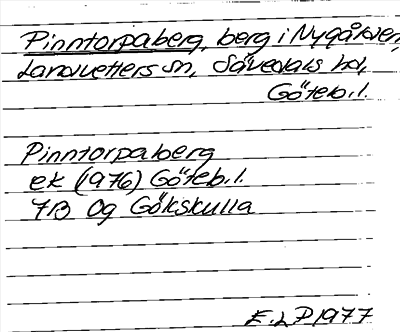 Pinntorpaberg, berg i Nygården,
Landvetters sn, Sävedals hd,
Göteb. l.
Pinntorpaberg
ek (1976) Göteb. l.
7B 0g Gökskulla
E.LP 1977